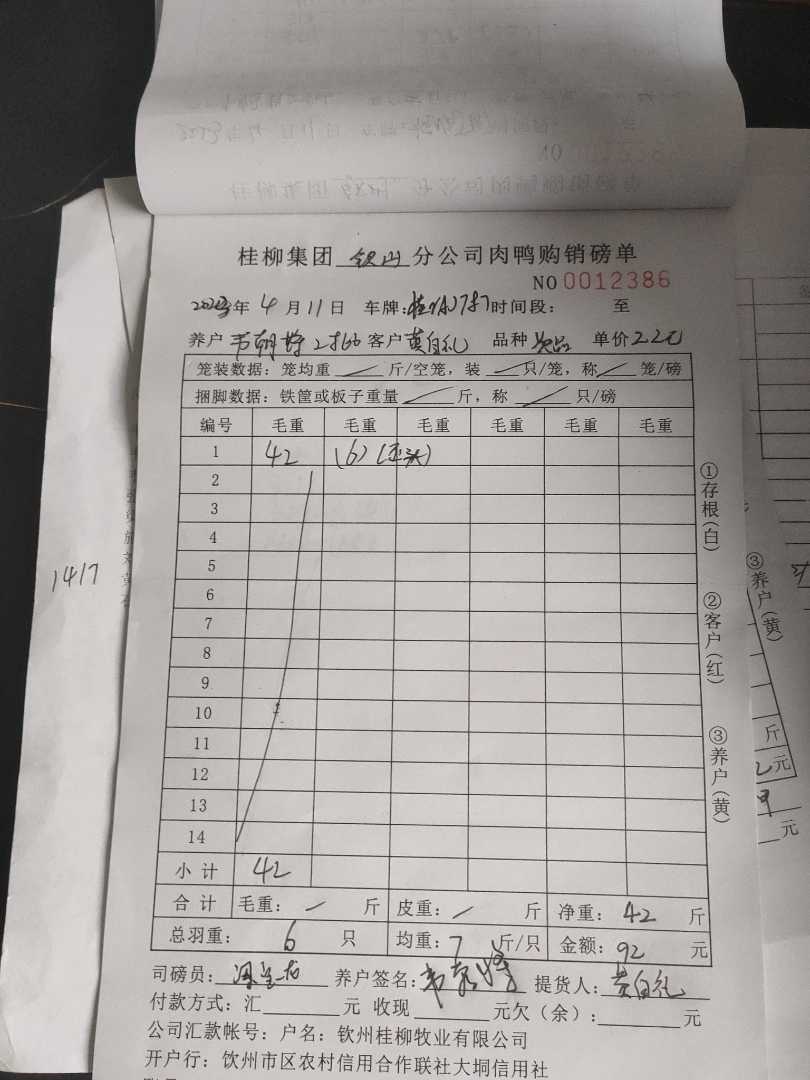 桂柳集团 钦州 分公司肉鸭购销磅单
NO 0012386
2023年 4 月 11 日 车牌: 时间段: 至
养户 客户 黄自礼 品种 次品 单价 2.2元
笼装数据: 笼均重 / 斤/空笼, 装 / 只/笼, 称 / 笼/磅
捆脚数据: 铁筐或板子重量 / 斤, 称 / 只/磅
编号 毛重 毛重 毛重 毛重 毛重 毛重
1 42 (6)
2
3
4
5
6
7
8
9
10
11
12
13
14
小 计 42
合 计 毛重: / 斤 皮重: / 斤 净重: 42 斤
总羽重: 6 只 均重: 7 斤/只 金额: 92 元
司磅员: 养户签名: 提货人: 黄自礼
付款方式: 汇 元 收现 元欠(余): 元
公司汇款帐号: 户名: 钦州桂柳牧业有限公司
开户行: 饮州市区农村信用合作联社大垌信用社
①存根(白)
②客户(红)
③养户(黄)
1417
③养户(黄)
斤
元
元